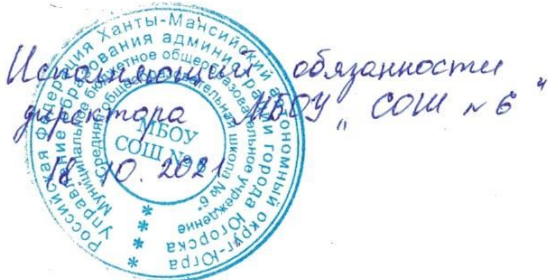 Исполняющий обязанности
директора МБОУ „ СОШ № 6 "
18. 10. 2021
Российская Федерация Ханты-Мансийский автономный округ-Югра
Управление образования администрации города Югорска
Муниципальное бюджетное общеобразовательное учреждение
"Средняя общеобразовательная школа № 6"
МБОУ
СОШ №